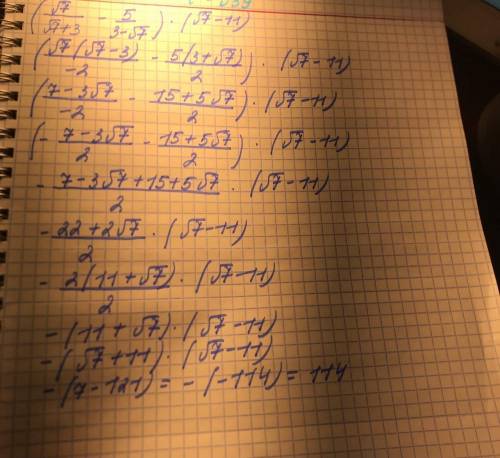 (√7/√7+3 - 5/3-√7) · (√7-11)
(√7(√7-3)/-2 - 5(3+√7)/2) · (√7-11)
(7-3√7/-2 - 15+5√7/2) · (√7-11)
(- 7-3√7/2 - 15+5√7/2) · (√7-11)
- 7-3√7+15+5√7/2 · (√7-11)
- 22+2√7/2 · (√7-11)
- 2(11+√7)/2 · (√7-11)
-(11+√7) · (√7-11)
-(√7+11) · (√7-11)
-(7-121) = -(-114) = 114